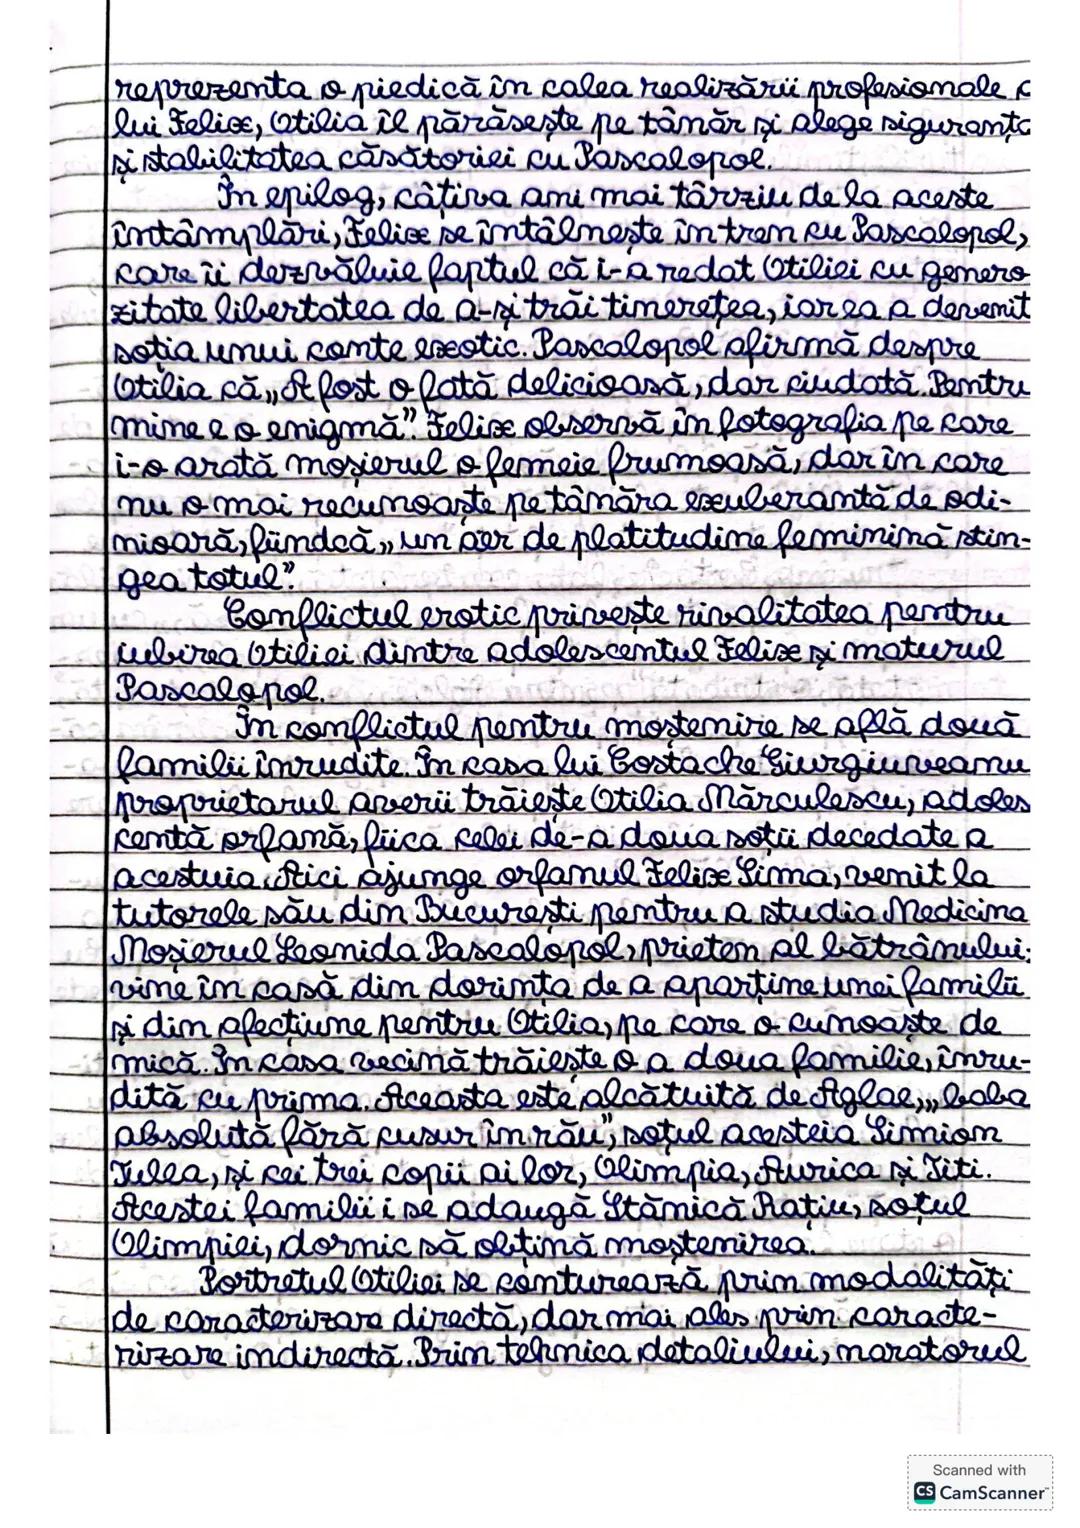 reprezenta o piedică în calea realizării profesionale a
lui Felix, Otilia îl părăsește pe tânăr și alege siguranța
și stabilitatea căsătoriei cu Pascalopol.
În epilog, câțiva ani mai târziu de la aceste
întâmplări, Felix se întâlnește în tren cu Pascalopol,
care îi dezvăluie faptul că i-a redat Otiliei cu genero-
zitate libertatea de a-și trăi tinerețea, iar ea a devenit
soția unui conte exotic. Pascalopol afirmă despre
Otilia că „A fost o fată delicioasă, dar ciudată. Pentru
mine e o enigmă”. Felix observă în fotografia pe care
i-o arată moșierul o femeie frumoasă, dar în care
nu o mai recunoaște pe tânăra exuberantă de odi-
nioară, fiindcă „un aer de platitudine feminină stin-
gea totul”.
Conflictul erotic privește rivalitatea pentru
iubirea Otiliei dintre adolescentul Felix și maturul
Pascalopol.
În conflictul pentru moștenire se află două
familii înrudite. În casa lui Costache Giurgiuveanu
proprietarul averii trăiește Otilia Mărculescu, adoles
centă orfană, fiica celei de-a doua soții decedate a
acestuia. Aici ajunge orfanul Felix Sima, venit la
tutorele său din București pentru a studia Medicina
Moșierul Leonida Pascalopol, prieten al bătrânului,
vine în casă din dorința de a aparține unei familii
și din afecțiune pentru Otilia, pe care o cunoaște de
mică. În casa vecină trăiește o a doua familie, înru-
dită cu prima. Aceasta este alcătuită de Aglae, „baba
absolută fără cusur în rău”, soțul acesteia Simion
Tulea, și cei trei copii ai lor, Olimpia, Aurica și Titi.
Acestei familii i se adaugă Stănică Rațiu, soțul
Olimpiei, dornic să obțină moștenirea.
Portretul Otiliei se conturează prin modalități
de caracterizare directă, dar mai ales prin caracte-
rizare indirectă. Prin tehnica detaliului, naratorul
Scanned with
CS CamScanner